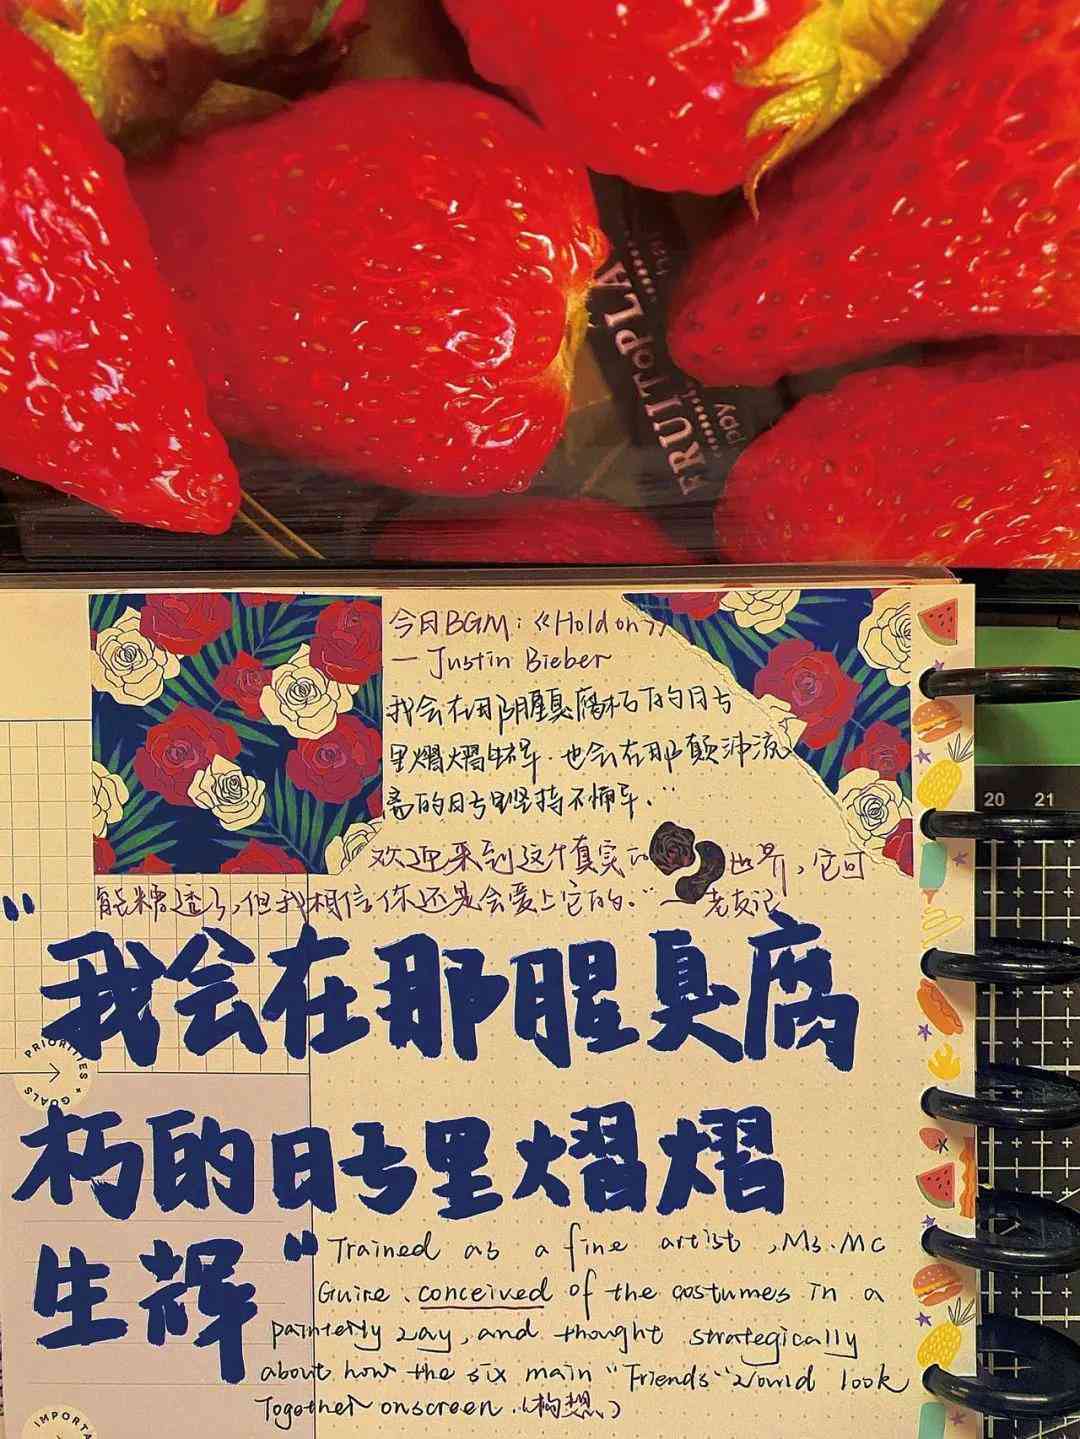 FRUITOPLA
ppy
今日BGM:《Hold on》
— Justin Bieber
我会在那腥臭腐朽的日子
里熠熠生辉.也会在那颠沛流
离的日子里坚持不懈.
欢迎来到这个真实的世界,它可
能糟透了,但我相信你还是会爱上它的。"—老友记
20 21
"我会在那腥臭腐
朽的日子里熠熠
生辉"
PRIORITIES + GOALS
Trained as a fine artist, Ms. Mc
Guire conceived of the costumes in a
painterly way, and thought strategically
about how the six main "Friends" would look
Together onscreen.(构想)
IMPORTA